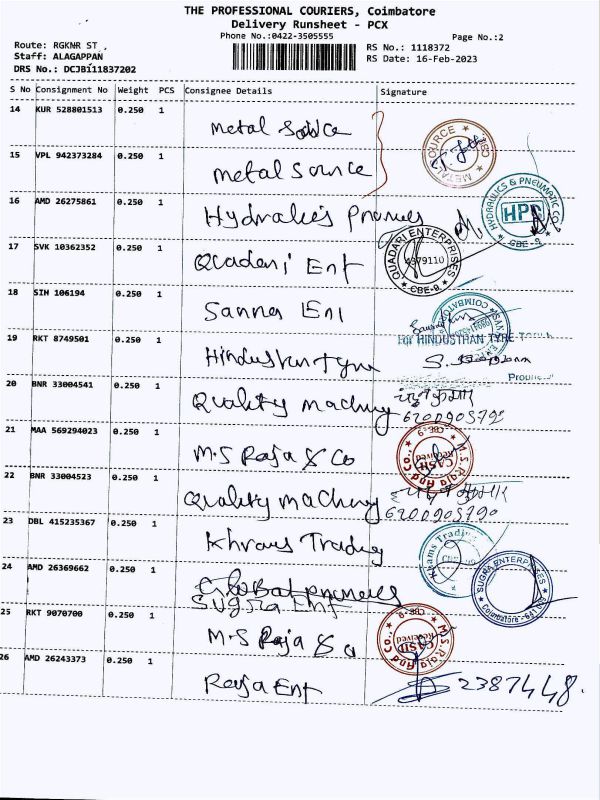 THE PROFESSIONAL COURIERS, Coimbatore
Delivery Runsheet - PCX
Phone No.:0422-3505555
Page No.:2
Route: RGKNR ST
Staff: ALAGAPPAN
DRS No.: DCJB111837202
RS No.: 1118372
RS Date: 16-Feb-2023
S No Consignment No Weight PCS Consignee Details Signature
14 KUR 528801513 0.250 1
Metal Source
METAL SOURCE
15 VPL 942373284 0.250 1
Metal Source
16 AMD 26275861 0.250 1
HYDRAULICS & PNEUMATIC CO.
HPC
CBE-9
17 SVK 10362352 0.250 1
Quadari Ent
QUADARI ENTERPRISES
4979110
CBE-9
18 SIH 106194 0.250 1
COIMBATORE
19 RKT 8749501 0.250 1
Hindusthan tyre
For HINDUSTHAN TYRE
20 BNR 33004541 0.250 1
Quality Machinery
6200905790
21 MAA 569294023 0.250 1
M.S Raja & Co
M.S. Raja And Co.,
CASH
Received
CBE-9
22 BNR 33004523 0.250 1
Quality Machinery
6200905790
23 DBL 415235367 0.250 1
Khrams Trading
Khams Trading
24 AMD 26369662 0.250 1
Sugra Ent
SUGRA ENTERPRISES
Coimbatore
25 RKT 9070700 0.250 1
M.S Raja & Co
M.S. Raja And Co.,
CASH
Received
CBE-9
26 AMD 26243373 0.250 1
Raja Ent
2387448.